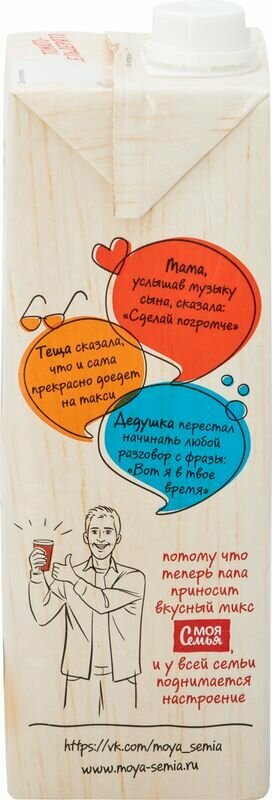 Мама,
услышав музыку
сына, сказала:
«Сделай погромче»
Теща сказала,
что и сама
прекрасно доедет
на такси
Дедушка перестал
начинать любой
разговор с фразы:
«Вот я в твое
время»
потому что
теперь папа
приносит
вкусный микс
МОЯ
Семья,
и у всей семьи
поднимается
настроение
https://vk.com/moya_semia
www.moya-semia.ru